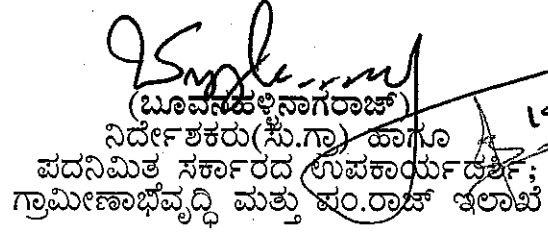 (ಬೂವನಹಳ್ಳಿನಾಗರಾಜ್)
ನಿರ್ದೇಶಕರು(ಸು.ಗ್ರಾ) ಹಾಗೂ
ಪದನಿಮಿತ ಸರ್ಕಾರದ ಉಪಕಾರ್ಯದರ್ಶಿ;
ಗ್ರಾಮೀಣಾಭಿವೃದ್ಧಿ ಮತ್ತು ಪಂ.ರಾಜ್ ಇಲಾಖೆ